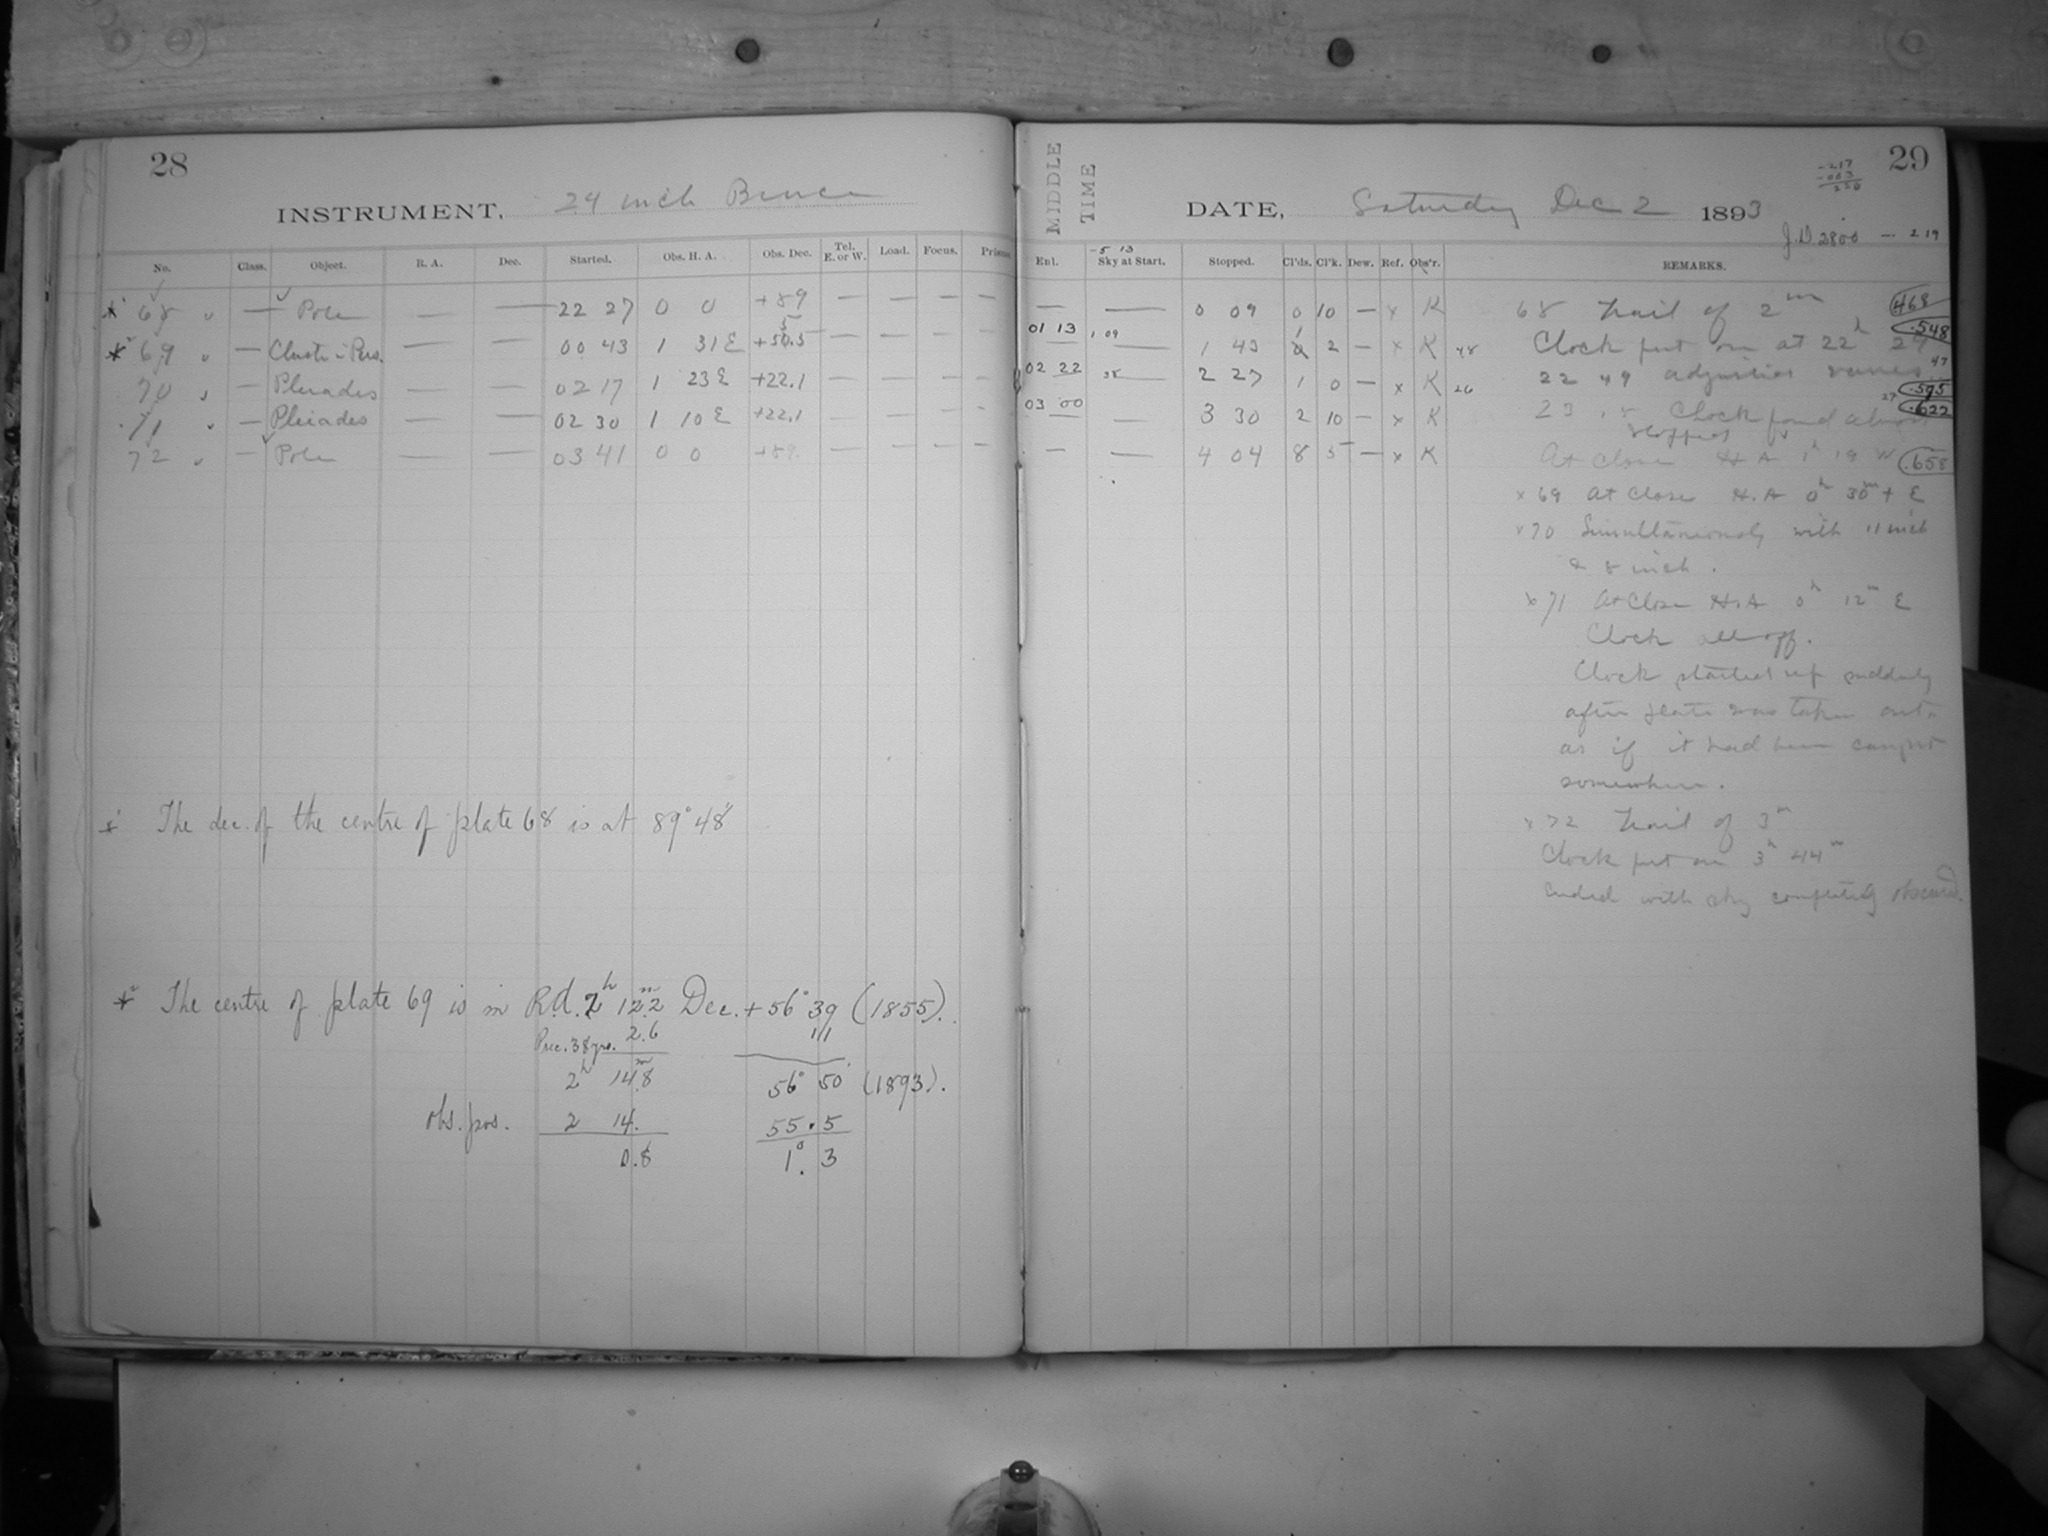 28
INSTRUMENT, 24 inch Bruce
No. Class. Object. R. A. Dec. Started. Obs. H. A. Obs. Dec. Tel. E. or W. Load. Focus. Prisms
* 68 — Pole — — 22 27 0 0 +89 — — — —
* 69 — — — 00 43 1 31 E — — — —
70 — Pleiades — — 02 17 1 23 E +22.1 — — — —
71 — Pleiades — — 02 30 1 10 E +22.1 — — — —
72 — Pole — — 03 41 0 0 +89 — — — —
* The dec. of the centre of plate 68 is at 89° 48'
* The centre of plate 69 is in R.A. 2h 12.2m Dec. + 56° 39 (1855).
Prec. 38 yrs. 2.6 11
2h 14.8m 56° 50' (1893).
obs. pos. 2 14. 55.5
0.8 1°.3
29
MIDDLE TIME
DATE, Saturday Dec 2 1893
-217
-003
220
J.D. 2800 — 219
-5 13
Enl. Sky at Start. Stopped. Cl'ds. Cl'k. Dew. Ref. Obs'r. REMARKS.
— — 0 09 0 10 — x K
01 13 1 09 — 1 43 2 — x K 48
02 22 — 2 27 1 0 — x K 26
03 00 — 3 30 2 10 — x K
— — 4 04 8 5 — x K
68 Trail of 2m .468
Clock put on at 22h 29 .548
22 49 47
.595
23 Clock found almost 27 .622
stopped
At close H A 1h 19 W .658
x 69 At close H.A 0h 30m + E
x 70 Simultaneously with 11 inch
& 8 inch.
x 71 At Close H.A 0h 12m E
Clock all off.
Clock started up suddenly
after plate was taken out
as if it had been caught
somewhere.
x 72 Trail of 3m
Clock put on 3h 44m
Ended with sky completely obscured.